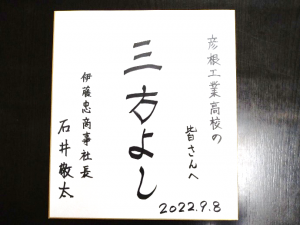 彦根工業高校の
皆さんへ
三方よし
伊藤忠商事社長
石井敬太
2022.9.8